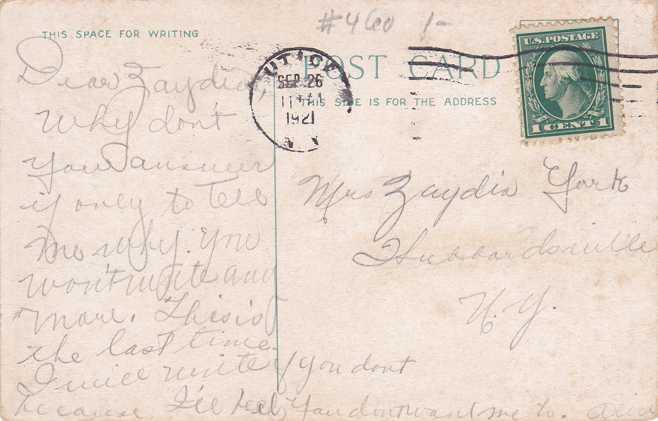 #460 1-
THIS SPACE FOR WRITING
UTICA
SEP 26
1921
N Y
POST CARD
THIS SIDE IS FOR THE ADDRESS
U.S. POSTAGE
1 CENT 1
Dear Zaydia,
Why don't
you answer
if only to tell
me why you
won't write any
more. This is
the last time
I will write if you dont
because I'll feel you don't want me to.
Mrs Zaydia York
Hubbardsville
N.Y.